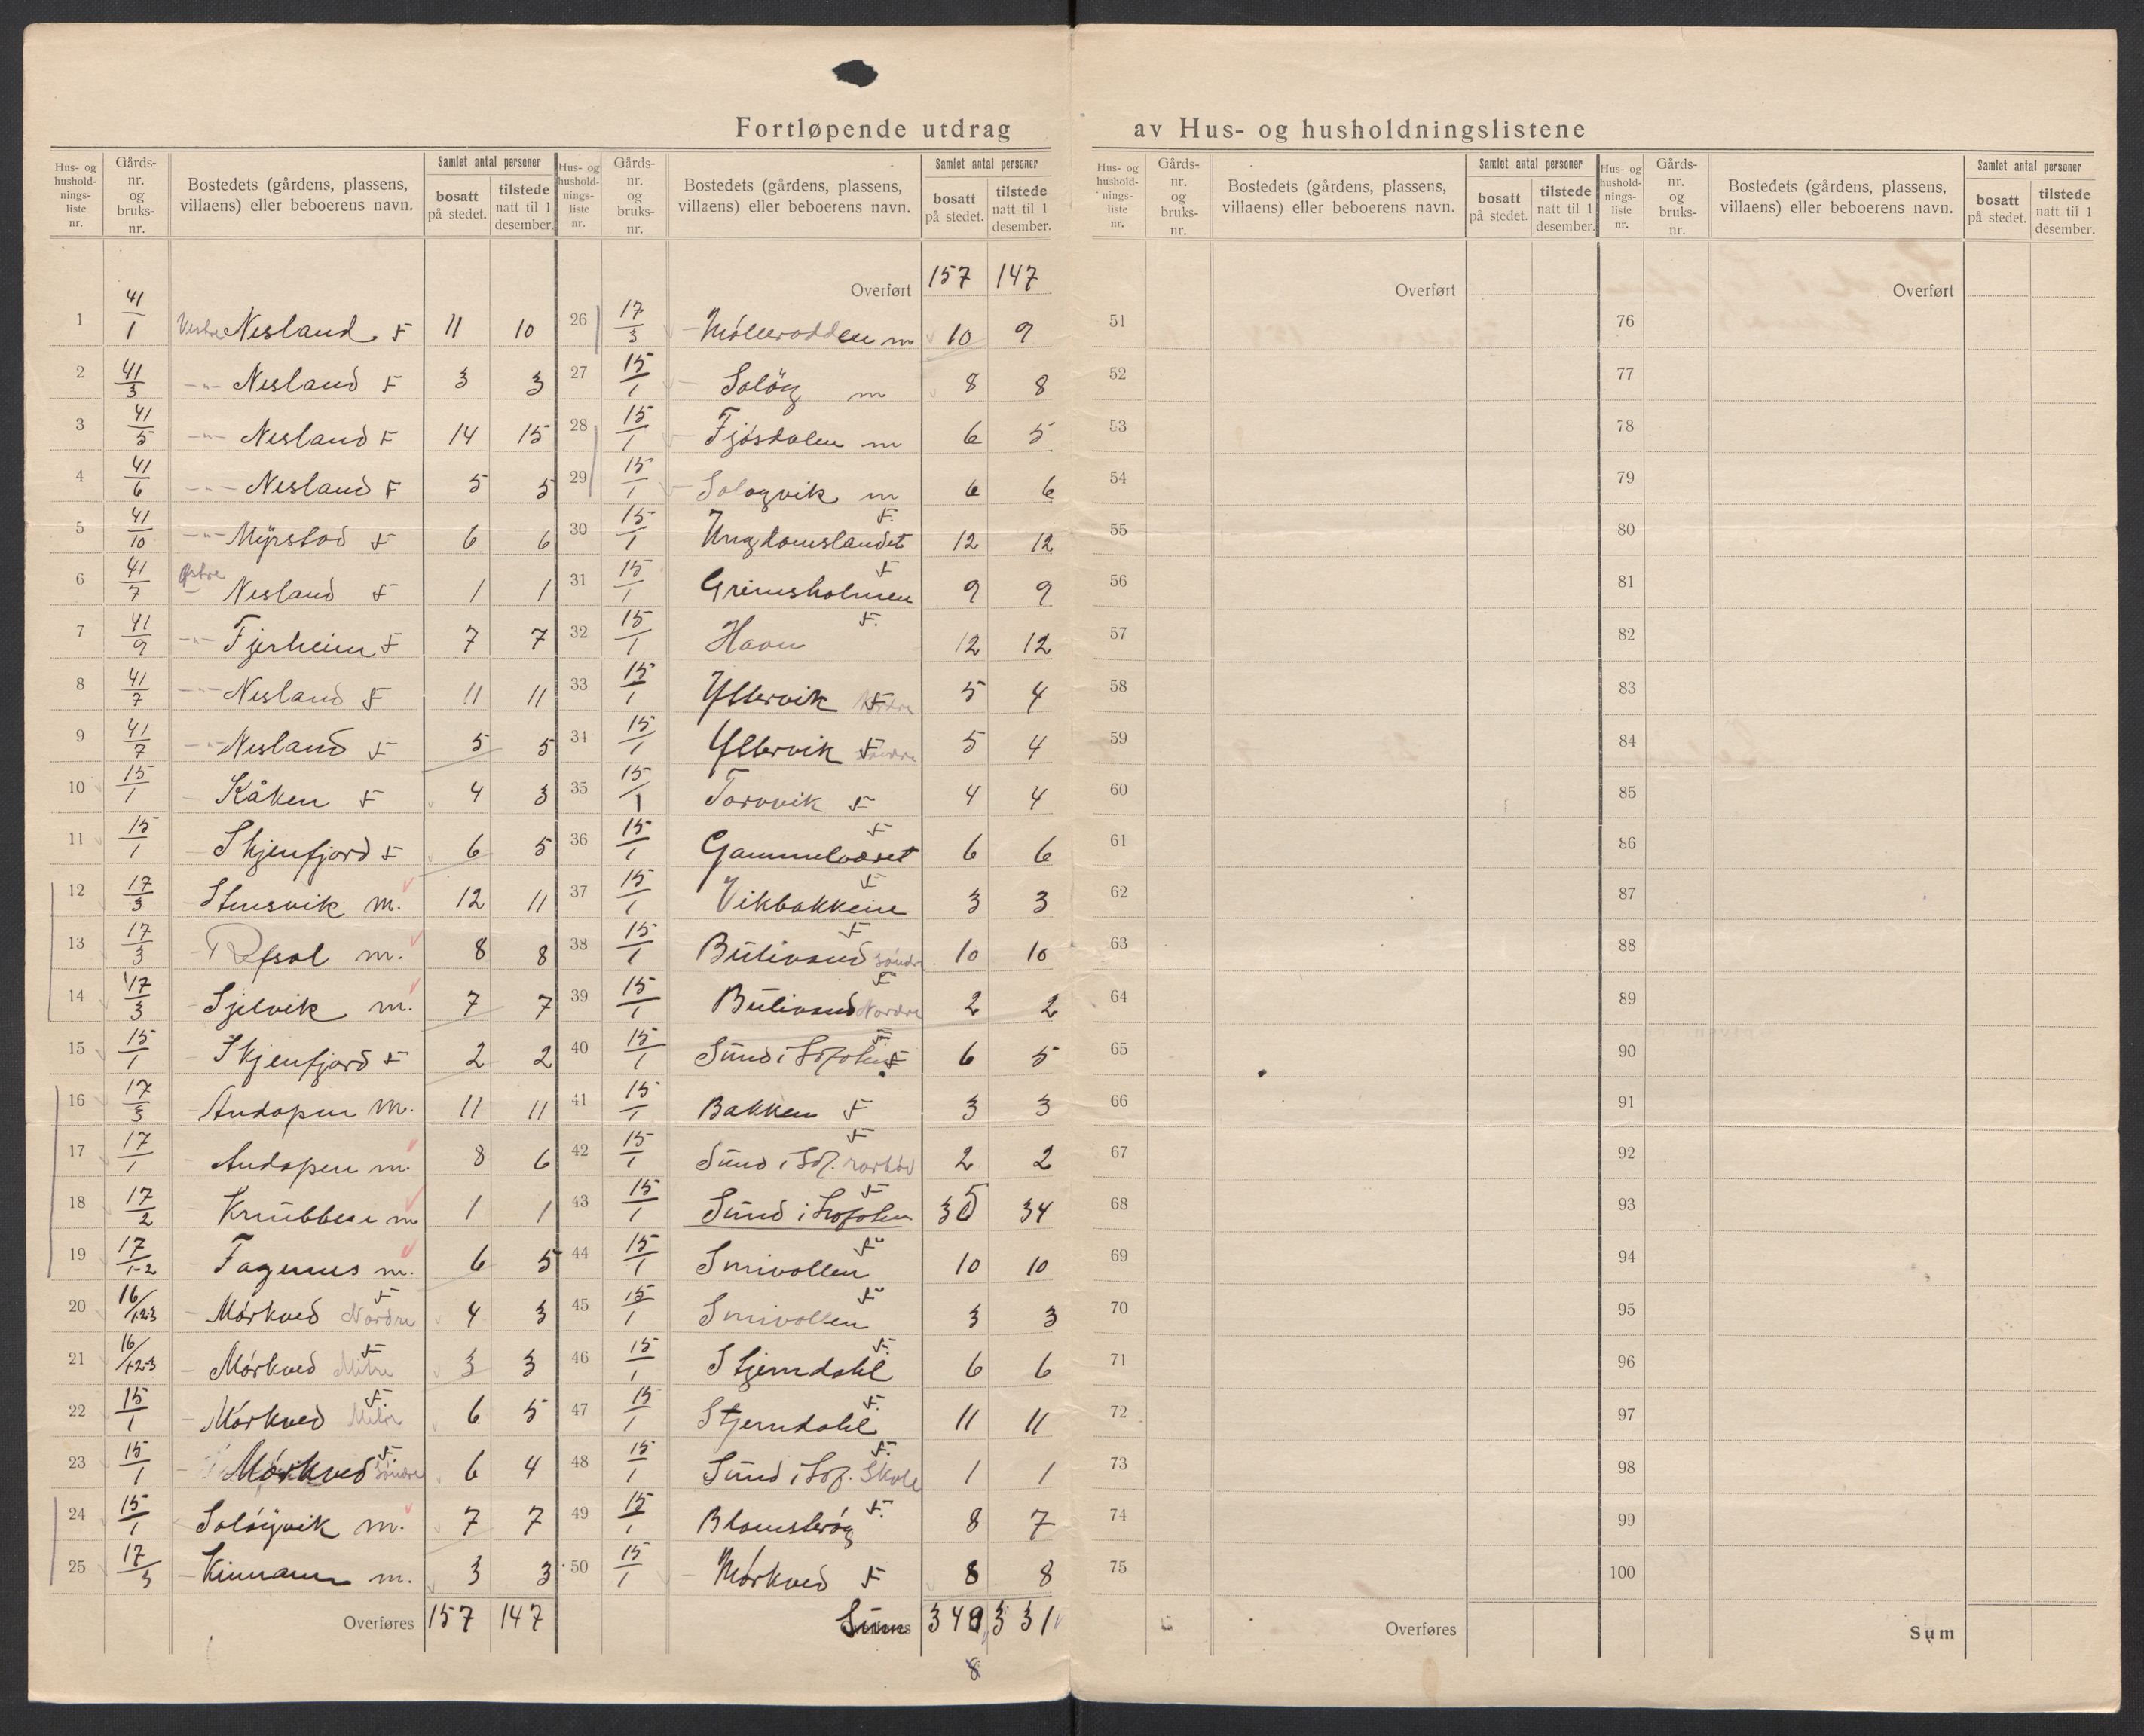 Fortløpende utdrag av Hus- og husholdningslistene
Hus- og hushold-nings-liste nr. Gårds-nr. og bruks-nr. Bostedets (gårdens, plassens, villaens) eller beboerens navn. Samlet antal personer bosatt på stedet. tilstede natt til 1 desember.
1 41/1 Vestre Nesland F 11 10
2 41/3 -"- Nesland F 3 3
3 41/5 -"- Nesland F 14 15
4 41/6 -"- Nesland F 5 5
5 41/10 -"- Myrstad F 6 6
6 41/7 Østre Nesland F 1 1
7 41/9 -"- Fjerheim F 7 7
8 41/7 -"- Nesland F 11 11
9 41/7 -"- Nesland F 5 5
10 15/1 Kåken F 4 3
11 15/1 Skjenfjord F 6 5
12 17/3 Stensvik m. 12 11
13 17/3 Refsal m. 8 8
14 17/3 Sjelvik m. 7 7
15 15/1 Skjenfjord F 2 2
16 17/3 Andopen m. 11 11
17 17/1 Andopen m. 8 6
18 17/2 Krubben m 1 1
19 17/1-2 Fagernes m. 6 5
20 16/1-2-3 Mørkved Nordre F 4 3
21 16/1-2-3 Mørkved Mitre F 3 3
22 15/1 Mørkved Mitre F. 6 5
23 15/1 Mørkved Søndre F. 6 4
24 15/1 Soløyvik m. 7 7
25 17/3 Kinnann m. 3 3
Overføres 157 147
Hus- og hushold-nings-liste nr. Gårds-nr. og bruks-nr. Bostedets (gårdens, plassens, villaens) eller beboerens navn. Samlet antal personer bosatt på stedet. tilstede natt til 1 desember.
Overført 157 147
26 17/3 Møllerodden m 10 9
27 15/1 Soløy m 8 8
28 15/1 Fjøsdalen m 6 5
29 15/1 Soløyvik m 6 6
30 15/1 Ungdomslandet F. 12 12
31 15/1 Grimsholmen F 9 9
32 15/1 Havn F. 12 12
33 15/1 Yttervik Nordre F 5 4
34 15/1 Yttervik F Søndre 5 4
35 15/1 Torvvik F 4 4
36 15/1 Gammelværet F 6 6
37 15/1 Vikbakkene F 3 3
38 15/1 Butivand Søndre F 10 10
39 15/1 Butivand Nordre F 2 2
40 15/1 Sund i Lofoten F 6 5
41 15/1 Bakken F 3 3
42 15/1 Sund i Lof. rorbod F 2 2
43 15/1 Sund i Lofoten F 35 34
44 15/1 Smivollen F 10 10
45 15/1 Smivollen F 3 3
46 15/1 Stjerndahl F. 6 6
47 15/1 Stjerndahl F. 11 11
48 15/1 Sund i Lof. Skole F. 1 1
49 15/1 Blomsterøy F. 8 7
50 15/1 Mørkved F 8 8
Sum 348 331
8
Hus- og hushold-nings-liste nr. Gårds-nr. og bruks-nr. Bostedets (gårdens, plassens, villaens) eller beboerens navn. Samlet antal personer bosatt på stedet. tilstede natt til 1 desember.
Overført
51
52
53
54
55
56
57
58
59
60
61
62
63
64
65
66
67
68
69
70
71
72
73
74
75
Overføres
Hus- og hushold-nings-liste nr. Gårds-nr. og bruks-nr. Bostedets (gårdens, plassens, villaens) eller beboerens navn. Samlet antal personer bosatt på stedet. tilstede natt til 1 desember.
Overført
76
77
78
79
80
81
82
83
84
85
86
87
88
89
90
91
92
93
94
95
96
97
98
99
100
Sum